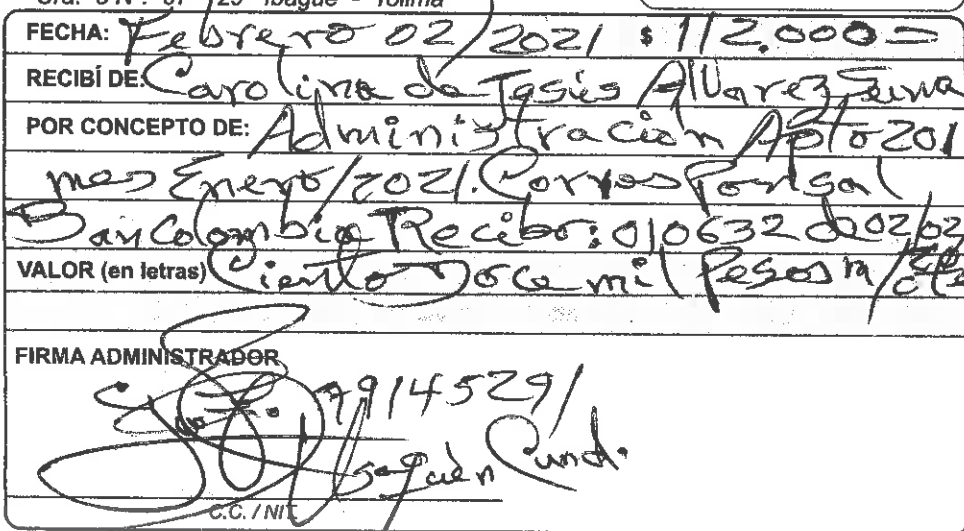 Ibagué - Tolima
FECHA: Febrero 02/2021 $ 112.000=
RECIBÍ DE: Carolina de Jesús Alvarez
POR CONCEPTO DE: Administración Apto 201
mes Enero/2021. Corresponsal
Bancolombia Recibo: 010632 de 02/02
VALOR (en letras) Ciento Doce mil Pesos m/cte
FIRMA ADMINISTRADOR
79145291
Usaquén Cund.
C.C. / NIT